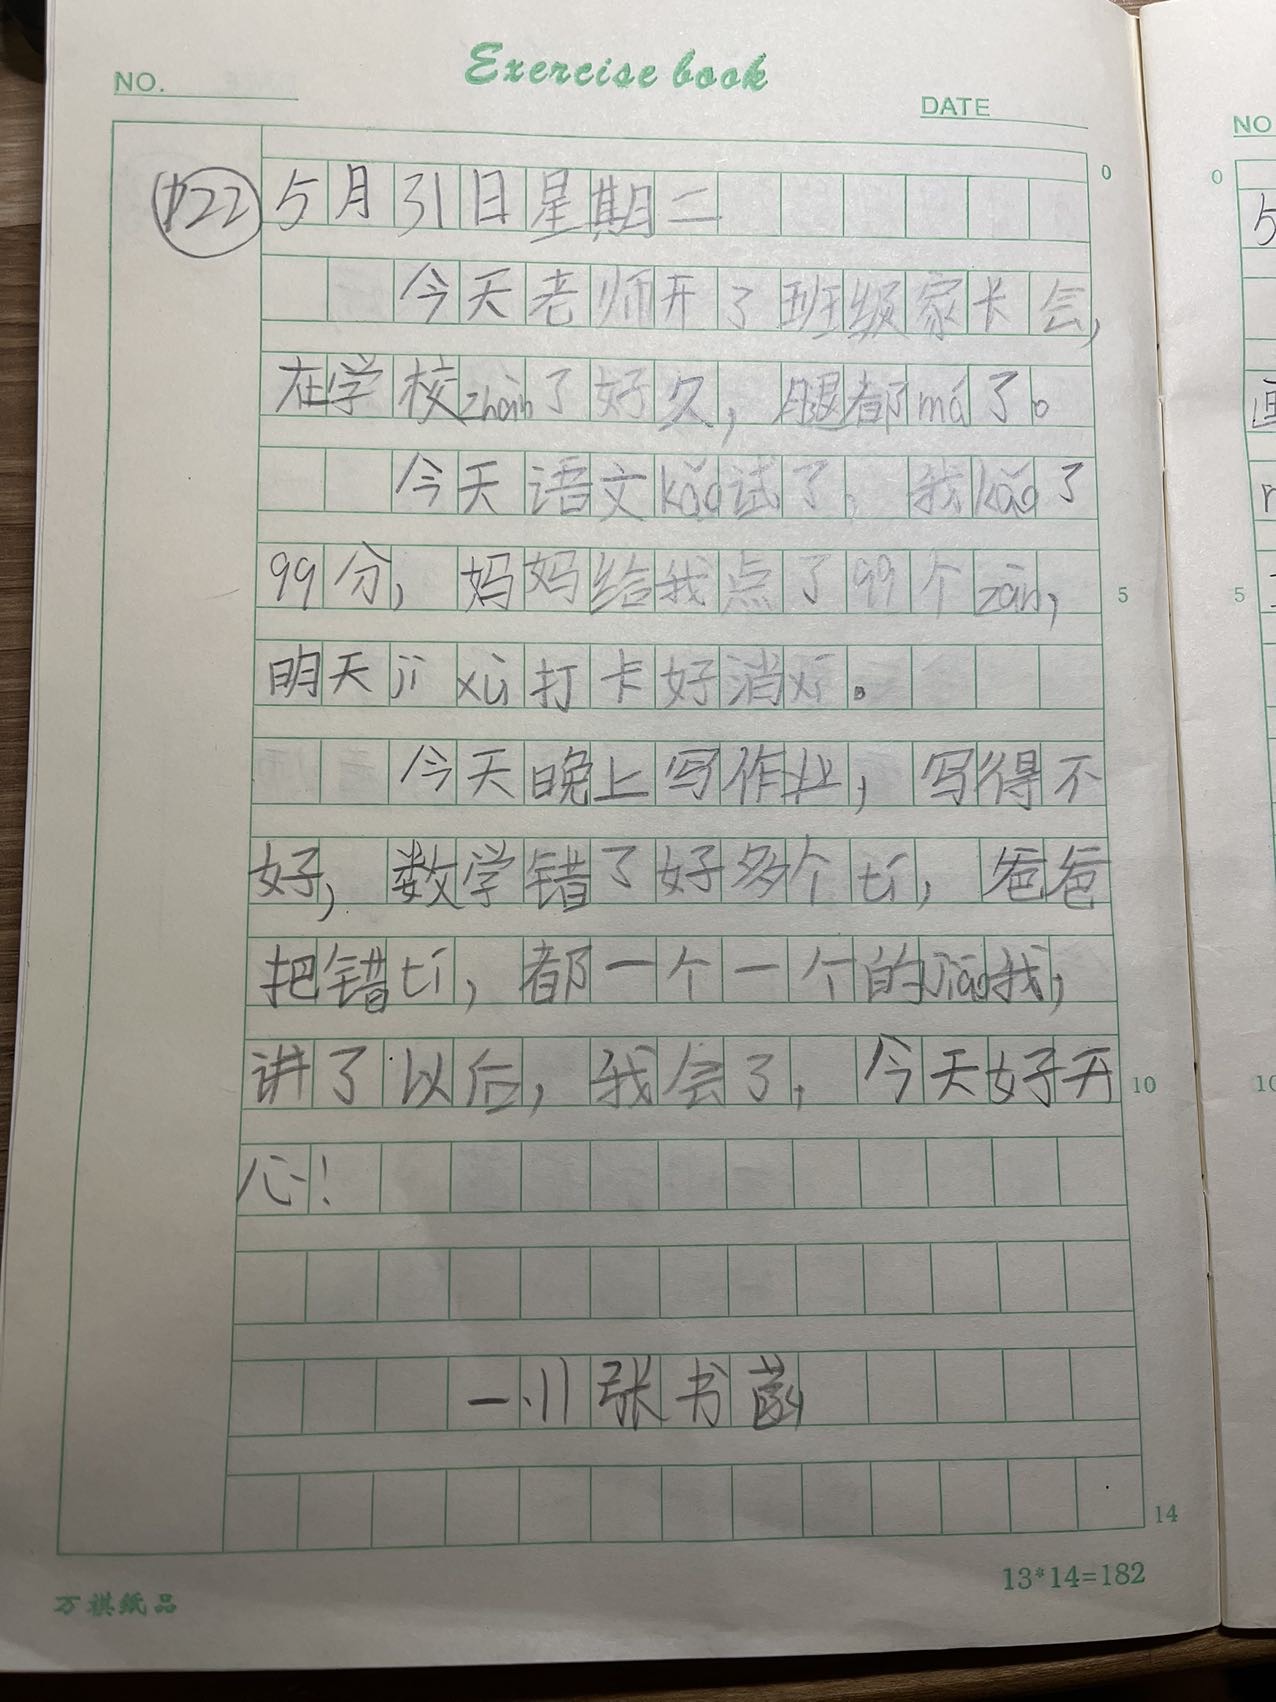 Exercise book
NO.
DATE
122 5月31日星期二
今天老师开了班级家长会,
在学校zhàn了好久,腿都má了。
今天语文kǎo试了。我kǎo了
99分,妈妈给我点了99个zàn,
明天jì xù打卡好消xi。
今天晚上写作业,写得不
好,数学错了好多个tí,爸爸
把错tí,都一个一个的jiāo我,
讲了以后,我会了,今天好开
心!
一.11张书菡
0
5
10
14
13*14=182
万祺纸品
NO
0
5
画
5
10